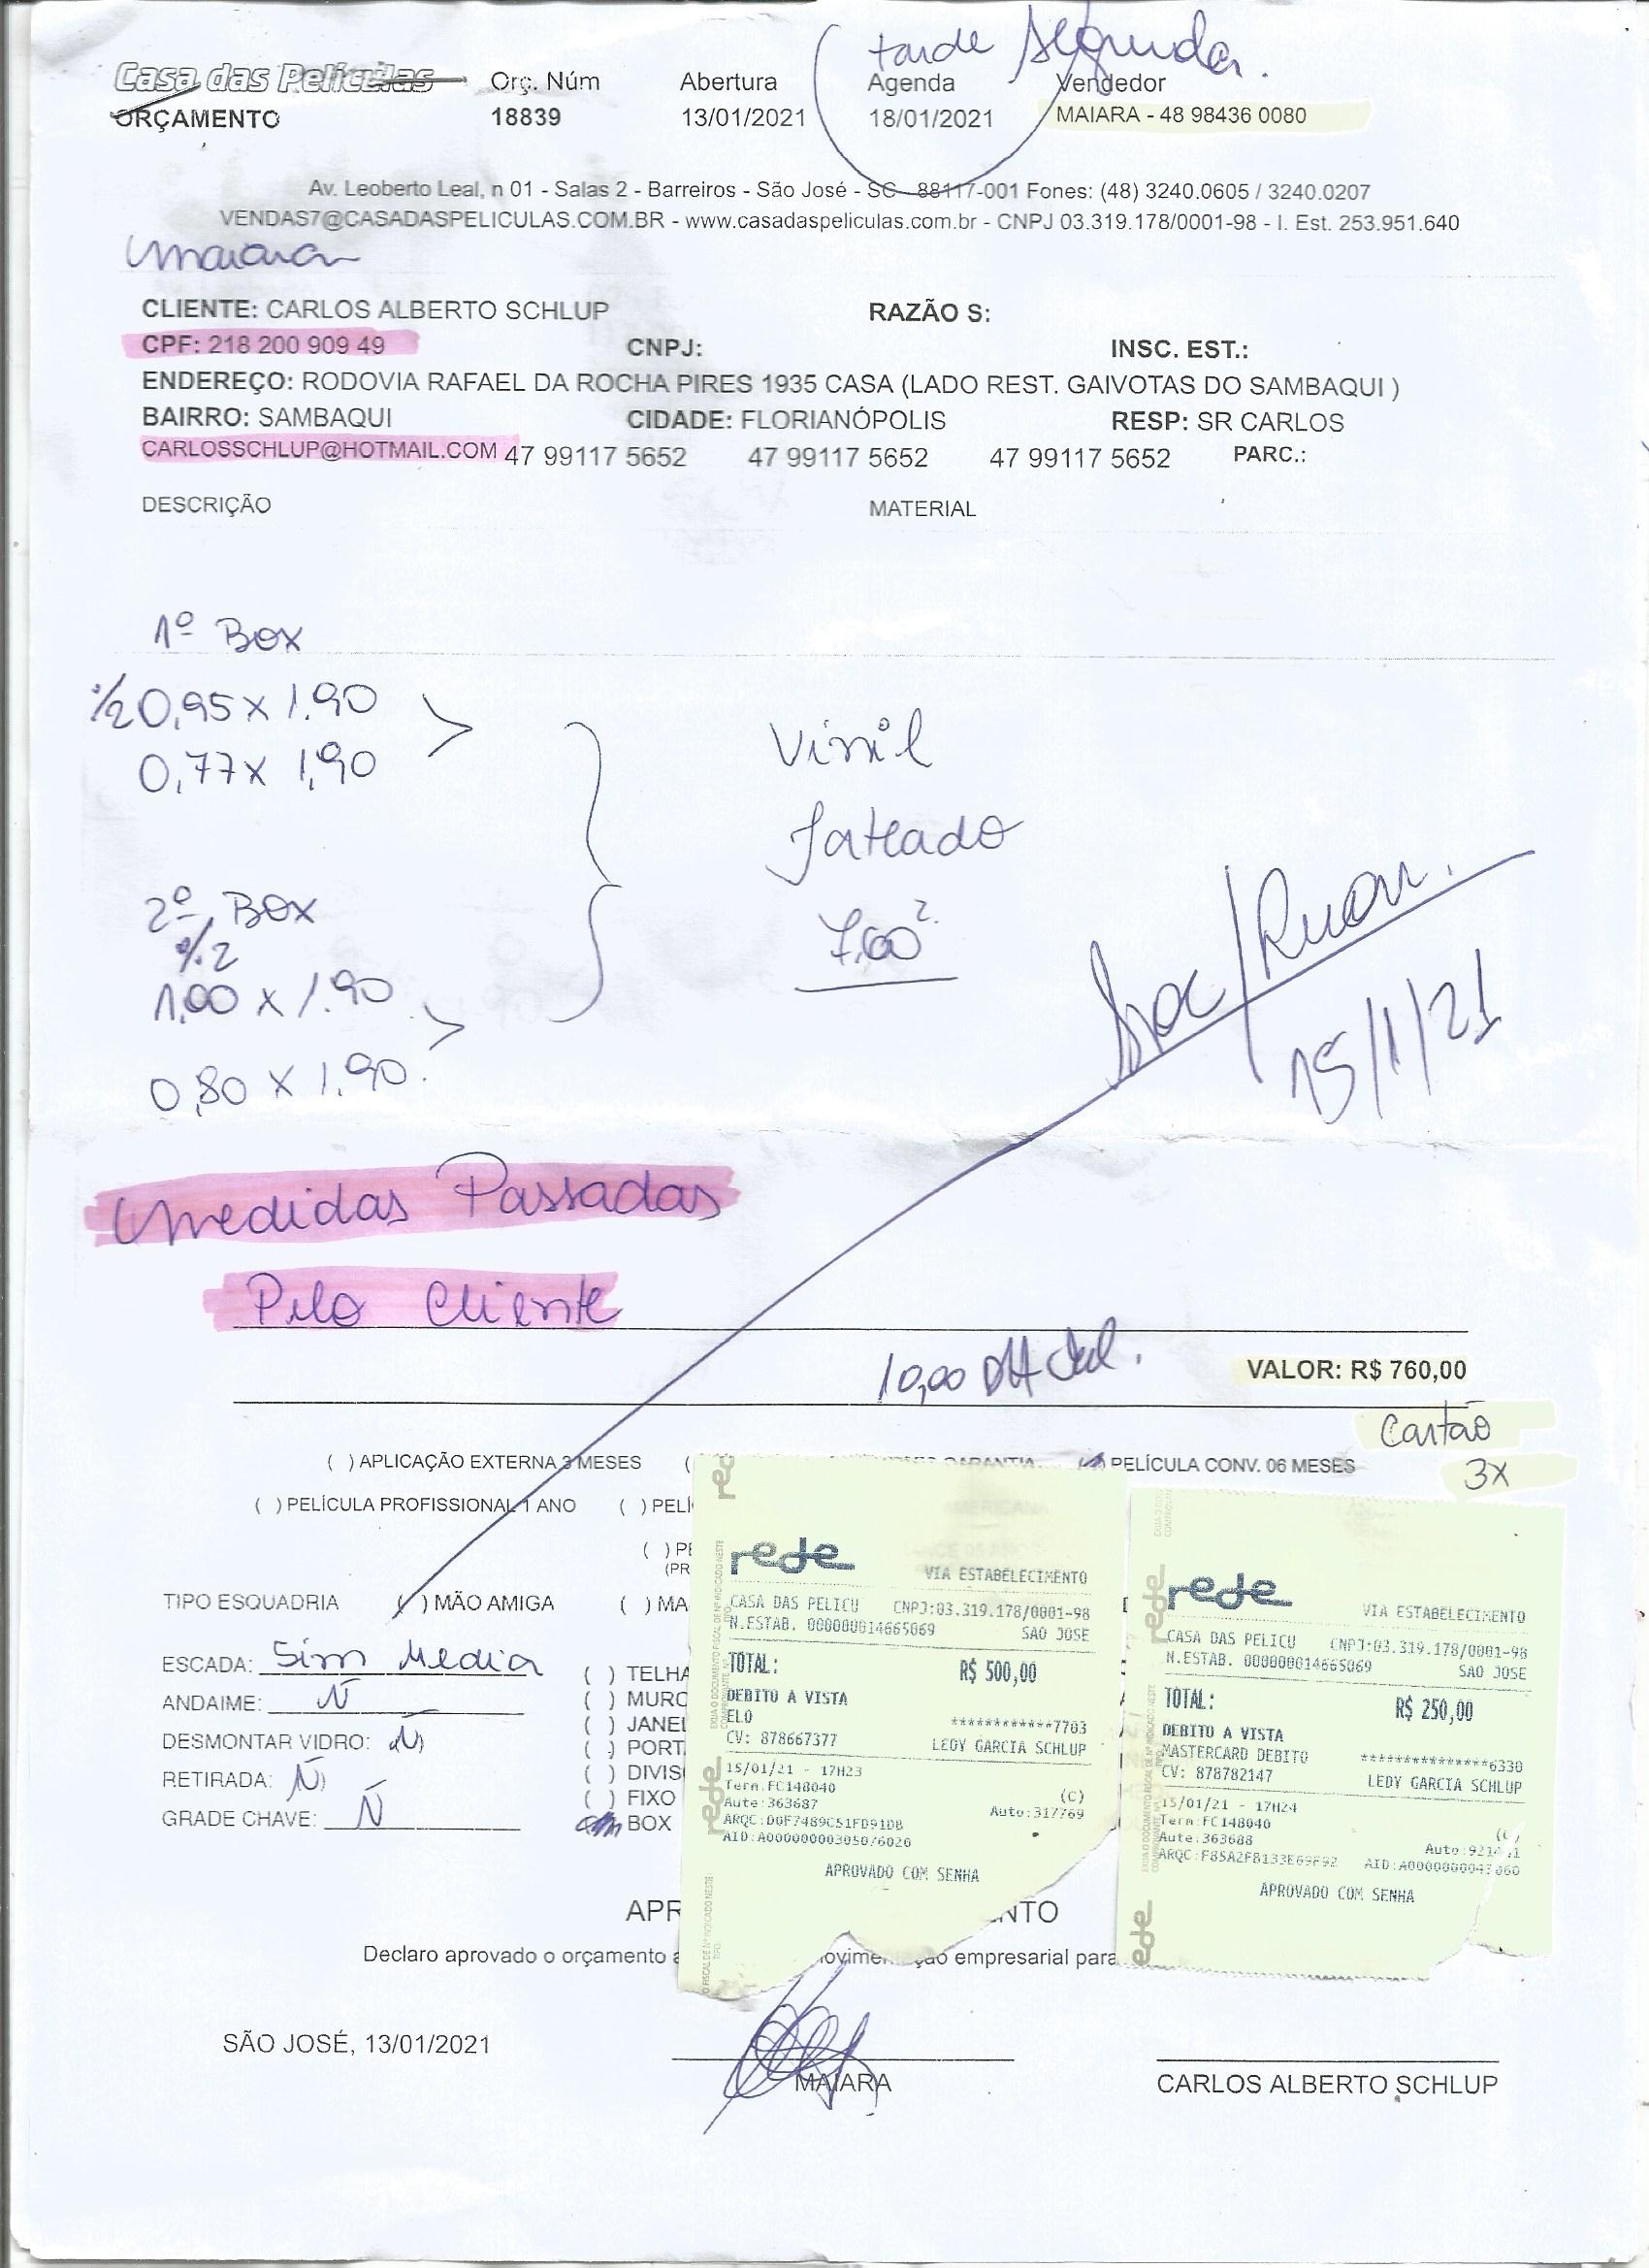 tarde segunda.
Casa das Películas
ORÇAMENTO
Orç. Núm
18839
Abertura
13/01/2021
Agenda
18/01/2021
Vendedor
MAIARA - 48 98436 0080
Av. Leoberto Leal, n 01 - Salas 2 - Barreiros - São José - SC - 88117-001 Fones: (48) 3240.0605 / 3240.0207
VENDAS7@CASADASPELICULAS.COM.BR - www.casadaspeliculas.com.br - CNPJ 03.319.178/0001-98 - I. Est. 253.951.640
Maiara
CLIENTE: CARLOS ALBERTO SCHLUP RAZÃO S:
CPF: 218 200 909 49 CNPJ: INSC. EST.:
ENDEREÇO: RODOVIA RAFAEL DA ROCHA PIRES 1935 CASA (LADO REST. GAIVOTAS DO SAMBAQUI )
BAIRRO: SAMBAQUI CIDADE: FLORIANÓPOLIS RESP: SR CARLOS
CARLOSSCHLUP@HOTMAIL.COM 47 99117 5652 47 99117 5652 47 99117 5652 PARC.:
DESCRIÇÃO MATERIAL
1º Box
0,95 x 1,90
0,77 x 1,90
Vinil
Jateado
7,60²
2º Box
1,00 x 1.90
0,80 x 1.90.
/Ruan.
15/1/21
Medidas Passadas
Pelo Cliente
10,00
VALOR: R$ 760,00
Cartão
3x
( ) APLICAÇÃO EXTERNA 3 MESES
GARANTIA
PELÍCULA CONV. 06 MESES
( ) PELÍCULA PROFISSIONAL 1 ANO ( ) PELÍ
( ) PE
(PR
TIPO ESQUADRIA ( ) MÃO AMIGA ( ) MA
ESCADA: Sim Media
ANDAIME: Ñ
DESMONTAR VIDRO: Ñ
RETIRADA: Ñ
GRADE CHAVE: Ñ
( ) TELHA
( ) MURO
( ) JANEL
( ) PORT
( ) DIVIS
( ) FIXO
BOX
rede
VIA ESTABELECIMENTO
CASA DAS PELICU CNPJ:03.319.178/0001-98
N.ESTAB. 000000014665069 SAO JOSE
TOTAL: R$ 500,00
DEBITO A VISTA
ELO ************7703
CV: 878667377 LEDY GARCIA SCHLUP
15/01/21 - 17H23
Term:FC148040 (C)
Aute:363687 Auto:317769
ARQC:D0F7489C51FD91DB
AID:A000000003050/6020
APROVADO COM SENHA
rede
VIA ESTABELECIMENTO
CASA DAS PELICU CNPJ:03.319.178/0001-98
N.ESTAB. 000000014665069 SAO JOSE
TOTAL: R$ 250,00
DEBITO A VISTA
MASTERCARD DEBITO ***************6330
CV: 878782147 LEDY GARCIA SCHLUP
15/01/21 - 17H24
Term:FC148040
Aute:363688
ARQC:F85A2F8133E69F92
APROVADO COM SENHA
APR NTO
Declaro aprovado o orçamento a ovimen ão empresarial para
SÃO JOSÉ, 13/01/2021
MAIARA
CARLOS ALBERTO SCHLUP